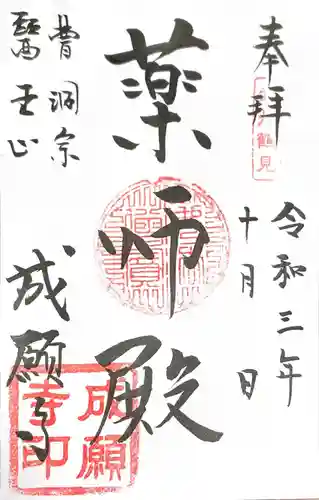 奉拝
令和三年
十月 日
薬師殿
曹洞宗
醫王山
成願寺
成願
寺印